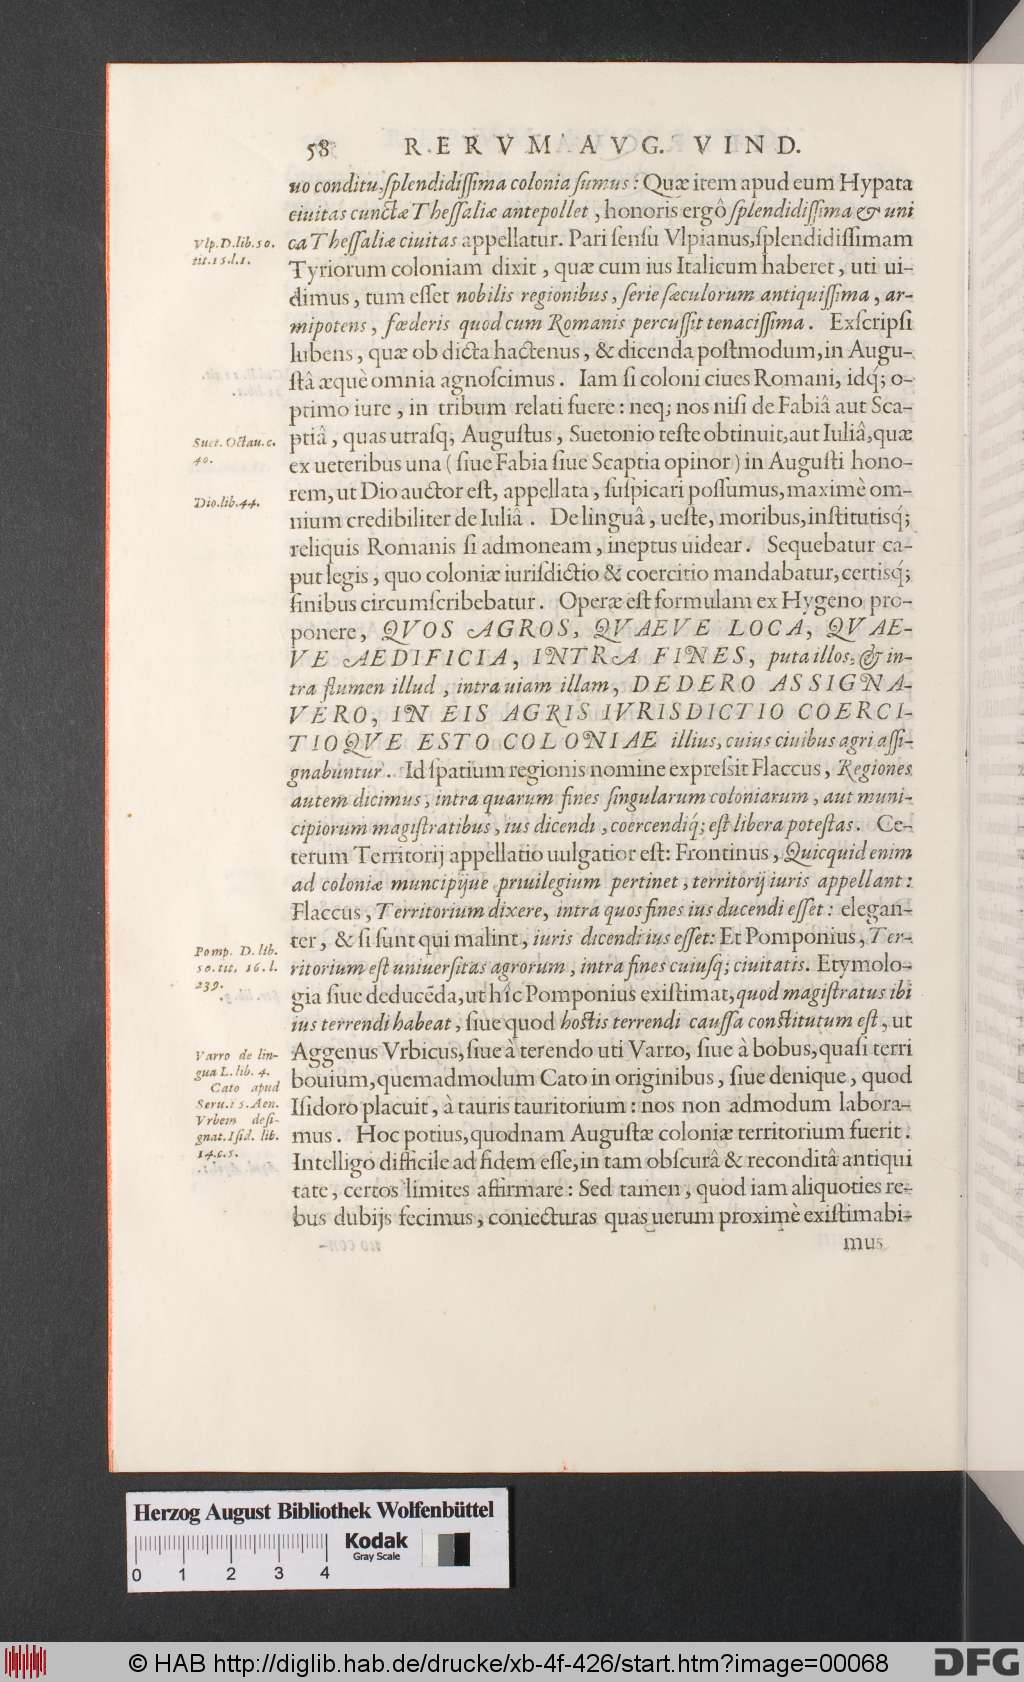 58 RERVM AVG. VIND.
uo conditu, ſplendidiſſima colonia ſumus: Quæ item apud eum Hypata
ciuitas cunctæ Theſſaliæ antepollet, honoris ergô ſplendidiſſima & uni
ca Theſſaliæ ciuitas appellatur. Pari ſenſu Vlpianus, ſplendidiſſimam
Tyriorum coloniam dixit, quæ cum ius Italicum haberet, uti ui-
dimus, tum eſſet nobilis regionibus, ſerie ſæculorum antiquiſſima, ar-
mipotens, fœderis quod cum Romanis percuſſit tenaciſſima. Exſcripſi
lubens, quæ ob dicta hactenus, & dicenda poſtmodum, in Augu-
ſtâ æquè omnia agnoſcimus. Iam ſi coloni ciues Romani, idq́; o-
ptimo iure, in tribum relati fuere: neq; nos niſi de Fabiâ aut Sca-
ptiâ, quas utraſq; Auguſtus, Suetonio teſte obtinuit, aut Iuliâ, quæ
ex ueteribus una (ſiue Fabia ſiue Scaptia opinor) in Auguſti hono-
rem, ut Dio auctor eſt, appellata, ſuſpicari poſſumus, maximè om-
nium credibiliter de Iuliâ. De linguâ, ueſte, moribus, inſtitutisq́;
reliquis Romanis ſi admoneam, ineptus uidear. Sequebatur ca-
put legis, quo coloniæ iuriſdictio & coercitio mandabatur, certisq́;
finibus circumſcribebatur. Operæ eſt formulam ex Hygeno pro-
ponere, QVOS AGROS, QVAEVE LOCA, QVAE-
VE AEDIFICIA, INTRA FINES, puta illos, & in-
tra flumen illud, intra uiam illam, DEDERO ASSIGNA-
VERO, IN EIS AGRIS IVRISDICTIO COERCI-
TIOQVE ESTO COLONIAE illius, cuius ciuibus agri aſſi-
gnabuntur. Id ſpatium regionis nomine expreſsit Flaccus, Regiones
autem dicimus, intra quarum fines ſingularum coloniarum, aut muni-
cipiorum magiſtratibus, ius dicendi, coercendiq́; eſt libera poteſtas. Ce-
terum Territorij appellatio uulgatior eſt: Frontinus, Quicquid enim
ad coloniæ muncipijue priuilegium pertinet, territorij iuris appellant:
Flaccus, Territorium dixere, intra quos fines ius ducendi eſſet: elegan-
ter, & ſi ſunt qui malint, iuris dicendi ius eſſet: Et Pomponius, Ter-
ritorium eſt uniuerſitas agrorum, intra fines cuiuſq; ciuitatis. Etymolo-
gia ſiue deducēda, ut hîc Pomponius exiſtimat, quod magiſtratus ibi
ius terrendi habeat, ſiue quod hoſtis terrendi cauſſa conſtitutum eſt, ut
Aggenus Vrbicus, ſiue à terendo uti Varro, ſiue à bobus, quaſi terri
bouium, quemadmodum Cato in originibus, ſiue denique, quod
Iſidoro placuit, à tauris tauritorium: nos non admodum labora-
mus. Hoc potius, quodnam Auguſtæ coloniæ territorium fuerit.
Intelligo difficile ad fidem eſſe, in tam obſcurâ & reconditâ antiqui
tate, certos limites affirmare: Sed tamen, quod iam aliquoties re-
bus dubijs fecimus, coniecturas quas uerum proximè exiſtimabi-
mus
Vlp. D. lib. 50.
tit. 15. l. 1.
Suet. Octau. c.
40.
Dio. lib. 44.
Pomp. D. lib.
50. tit. 16. l.
239.
Varro de lin-
gua L. lib. 4.
Cato apud
Seru. 15. Aen.
Vrbem deſi-
gnat. Iſid. lib.
14. c. 5.
Herzog August Bibliothek Wolfenbüttel
Kodak
Gray Scale
0 1 2 3 4
© HAB http://diglib.hab.de/drucke/xb-4f-426/start.htm?image=00068
DFG